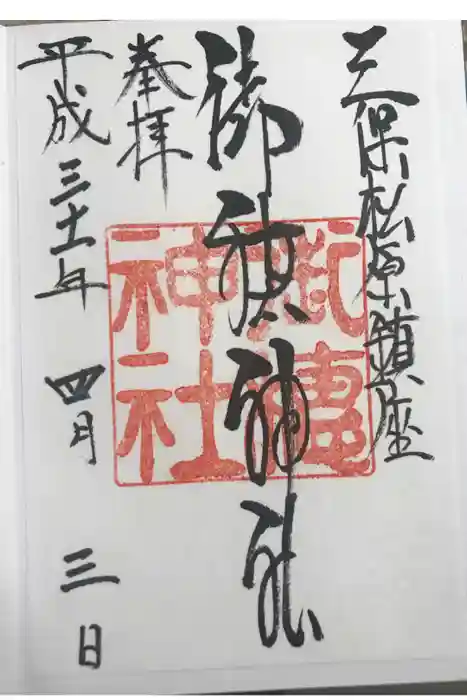 三保松原鎮座
御穂神社
奉拝
平成三十一年 四月 三日
神社